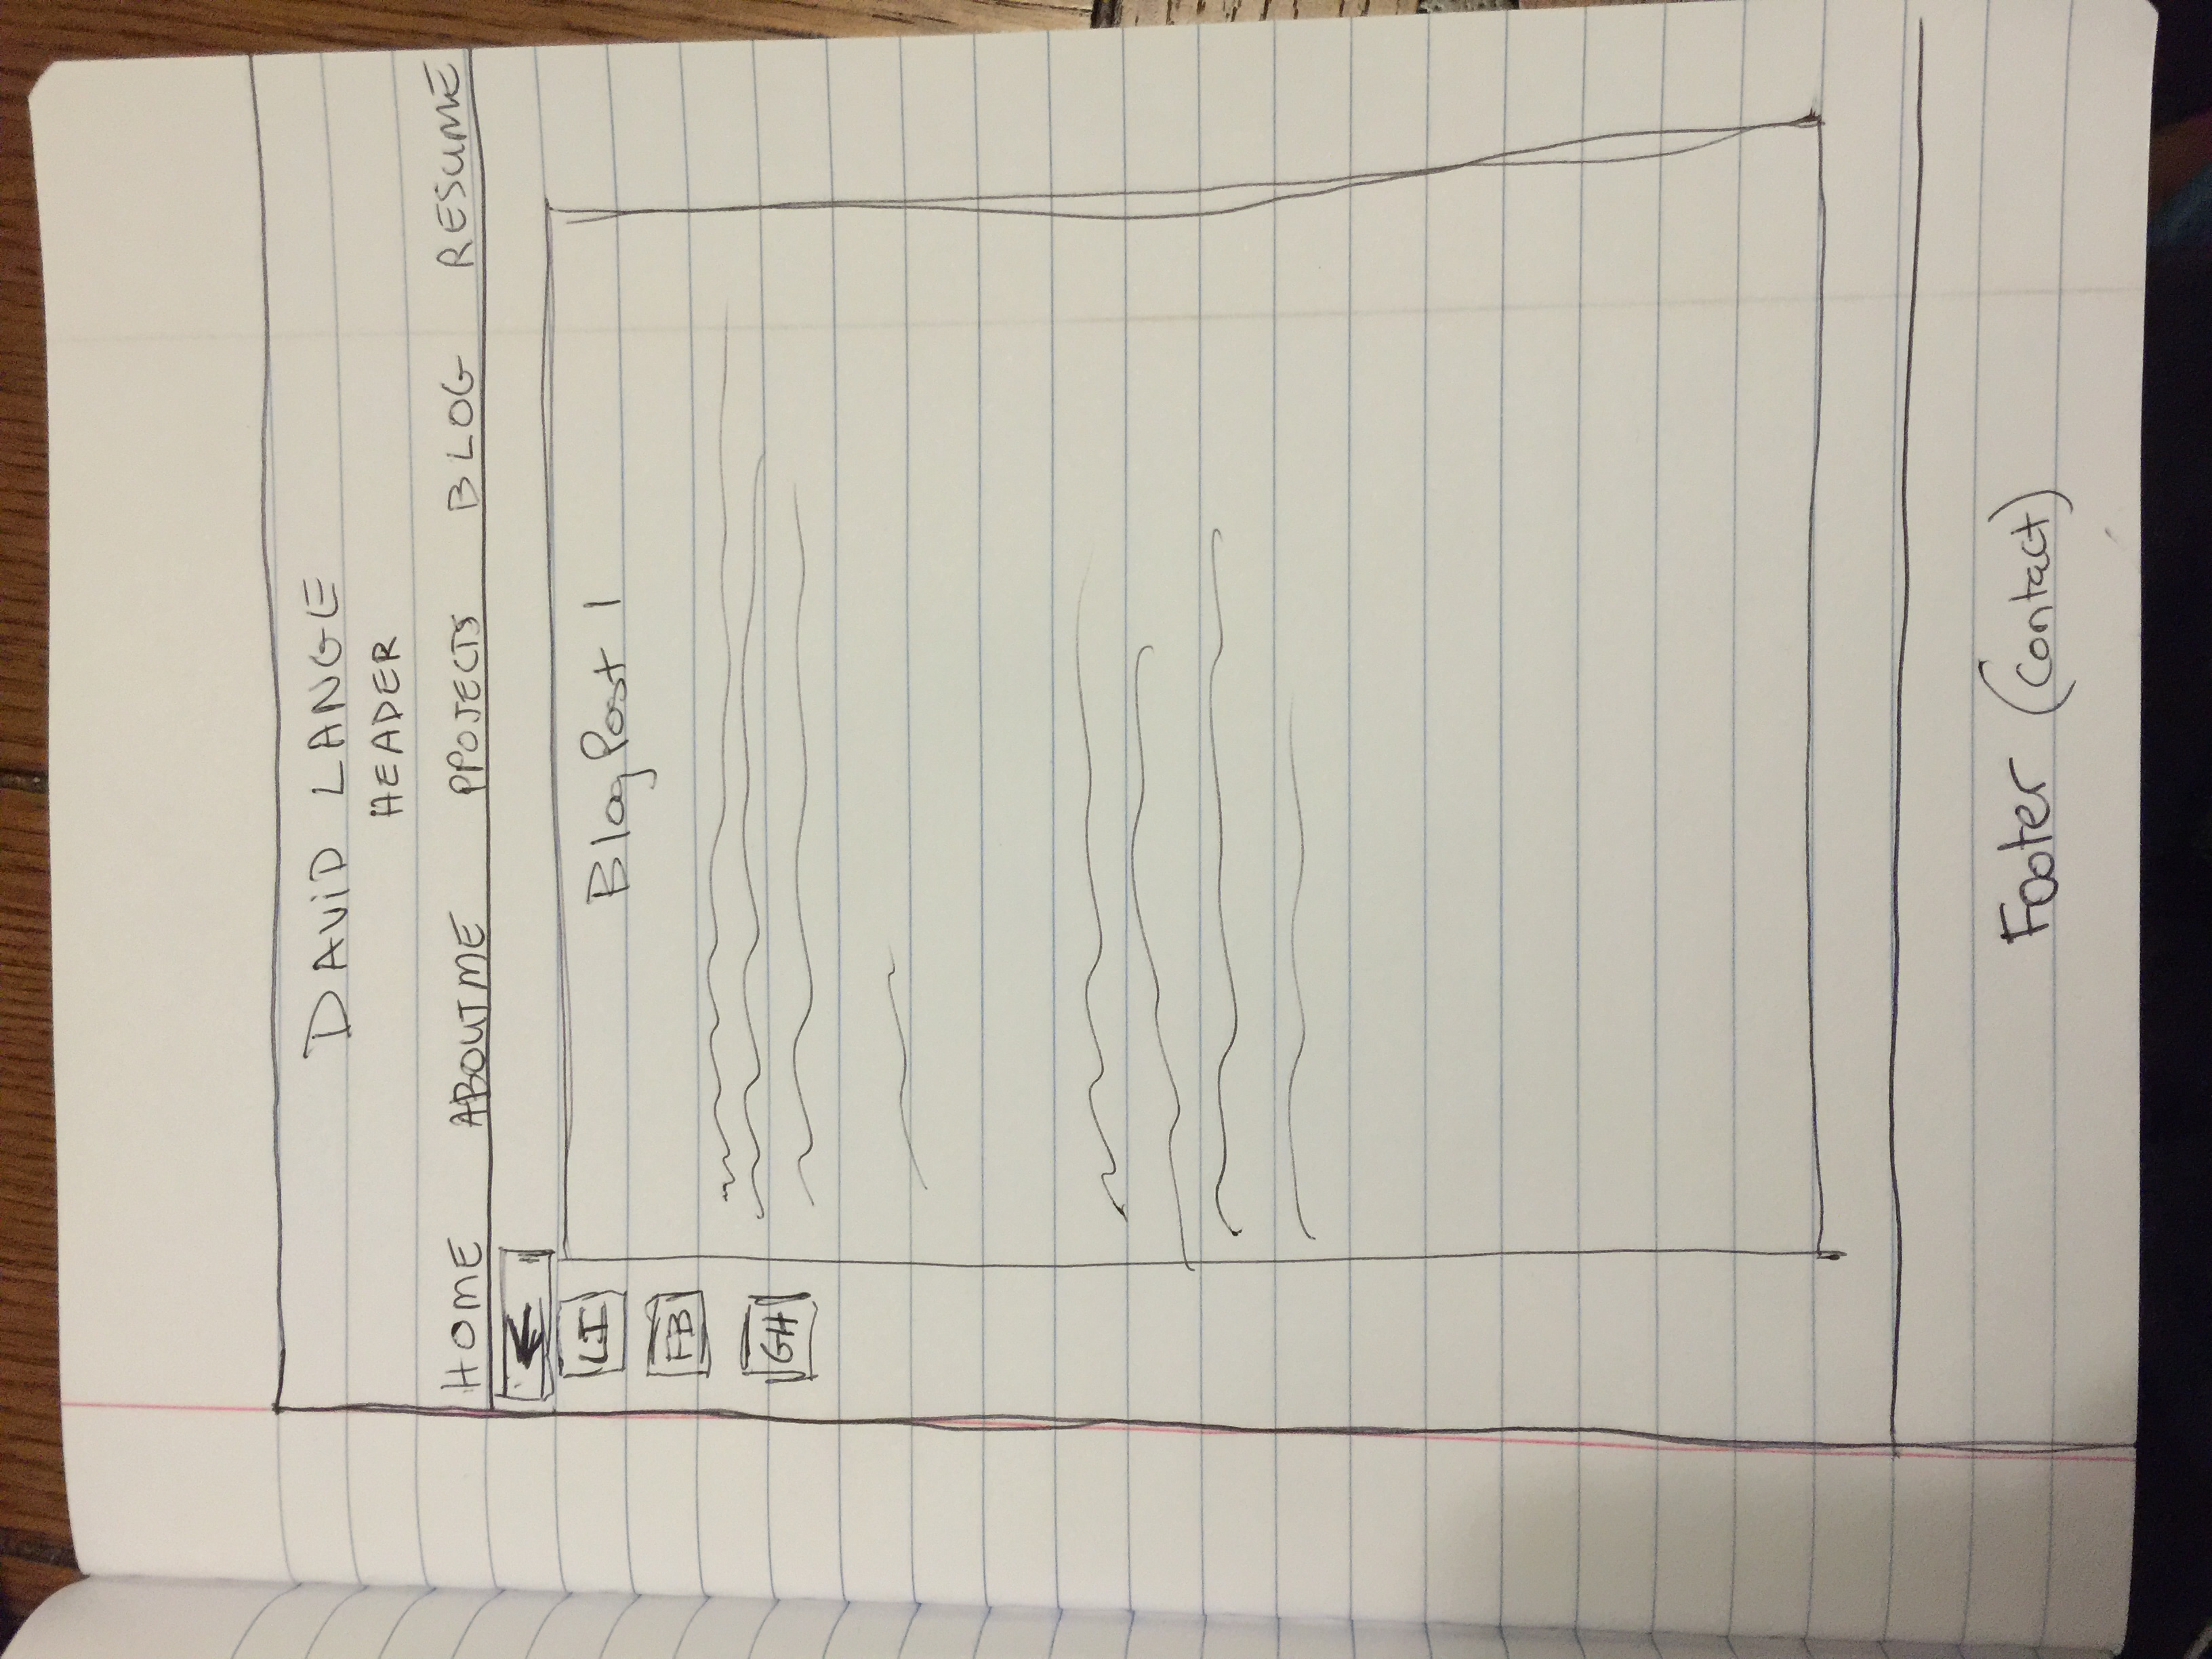 DAViD LANGE
HEADER
HOME ABOUT ME PPOJECTS BLOG RESUME
LI
FB
GH
Blog Post 1
Footer (contact)